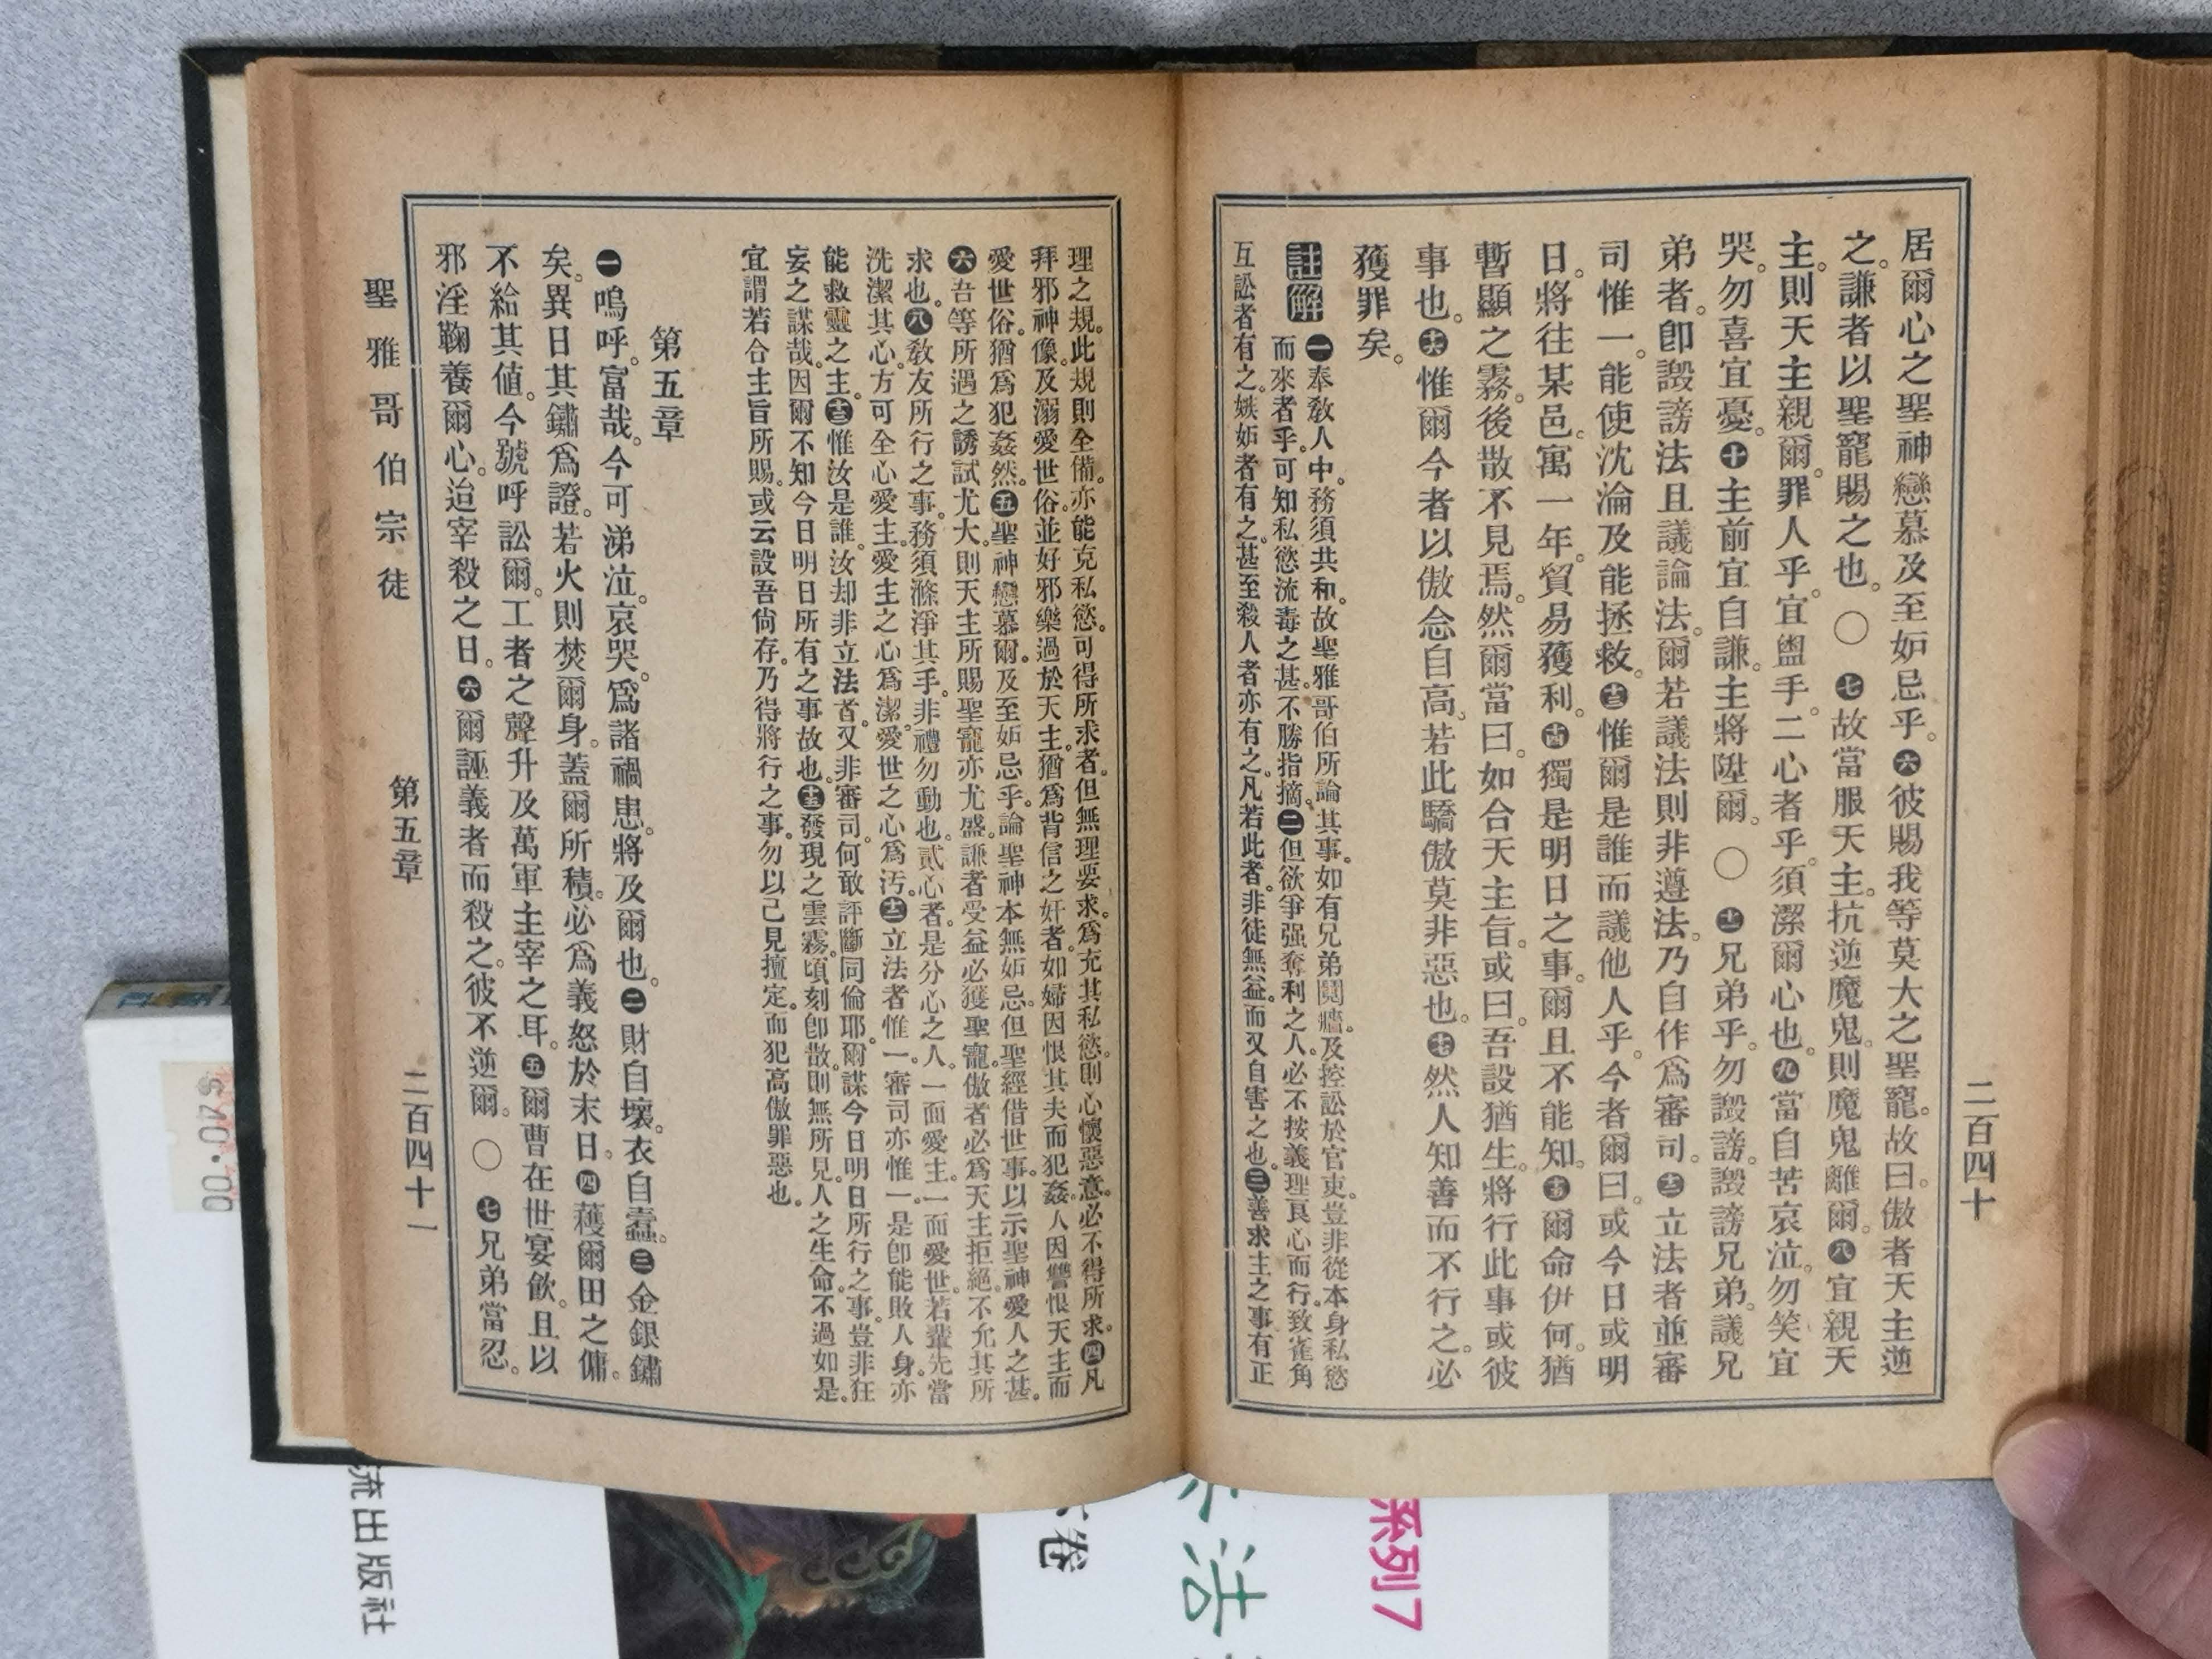 居爾心之聖神戀慕及至妒忌乎。六彼賜我等莫大之聖寵。故曰。傲者天主逆
之。謙者以聖寵賜之也。〇七故當服天主。抗逆魔鬼。則魔鬼離爾。八宜親天
主。則天主親爾。罪人乎。宜盥手。二心者乎。須潔爾心也。九當自苦哀泣。勿笑宜
哭。勿喜宜憂。十主前宜自謙。主將陞爾。〇十一兄弟乎。勿譭謗。譭謗兄弟。議兄
弟者。卽譭謗法且議論法。爾若議法則非遵法。乃自作爲審司。十二立法者並審
司惟一。能使沈淪及能拯救。十三惟爾是誰而議他人乎。今者爾曰。或今日或明
日。將往某邑。寓一年。貿易獲利。十四獨是明日之事。爾且不能知。十五爾命伊何。猶
暫顯之霧。後散不見焉。然爾當曰。如合天主旨。或曰。吾設猶生。將行此事或彼
事也。十六惟爾今者以傲念自高。若此驕傲莫非惡也。十七然人知善而不行之。必
獲罪矣。
註解 一奉敎人中。務須共和。故聖雅哥伯所論其事。如有兄弟鬩牆。及控訟於官吏。豈非從本身私慾
而來者乎。可知私慾流毒之甚。不勝指摘。二但欲爭强奪利之人。必不按義理良心而行。致雀角
互訟者有之。嫉妒者有之。甚至殺人者亦有之。凡若此者。非徒無益。而又自害之也。三善求主之事有正
理之規。此規則全備。亦能克私慾。可得所求者。但無理要求。爲充其私慾。則心懷惡意。必不得所求。四凡
拜邪神像。及溺愛世俗。並好邪樂過於天主。猶爲背信之奸者。如婦因恨其夫而犯姦。人因讐恨天主而
愛世俗。猶爲犯姦然。五聖神戀慕爾。及至妒忌乎。論聖神本無妒忌。但聖經借世事。以示聖神愛人之甚。
六吾等所遇之誘試尤大。則天主所賜聖寵亦尤盛。謙者受益必獲聖寵。傲者必爲天主拒絕。不允其所
求也。八敎友所行之事。務須滌淨其手。非禮勿動也。貳心者。是分心之人。一面愛主。一面愛世。若輩先當
洗潔其心。方可全心愛主。愛主之心爲潔。愛世之心爲汚。十二立法者惟一。審司亦惟一。是卽能敗人身。亦
能救靈之主。十三惟汝是誰。汝却非立法者。又非審司。何敢評斷同倫耶。爾謀今日明日所行之事。豈非狂
妄之謀哉。因爾不知今日明日所有之事故也。十五發現之雲霧。頃刻卽散。則無所見。人之生命。不過如是。
宜謂若合主旨所賜。或云設吾尙存。乃得將行之事。勿以己見擅定。而犯高傲罪惡也。
第五章
一嗚呼。富哉。今可涕泣。哀哭。爲諸禍患。將及爾也。二財自壞。衣自蠹。三金銀鏽
矣。異日其鏽爲證。若火則焚爾身。蓋爾所積。必爲義怒於末日。四穫爾田之傭。
不給其値。今號呼訟爾。工者之聲升及萬軍主宰之耳。五爾曹在世宴飮。且以
邪淫鞠養爾心。迨宰殺之日。六爾誣義者而殺之。彼不逆爾。〇七兄弟當忍。
聖雅哥伯宗徒 第五章 二百四十一
二百四十
$70.00
流出版社
卷
法
系列7